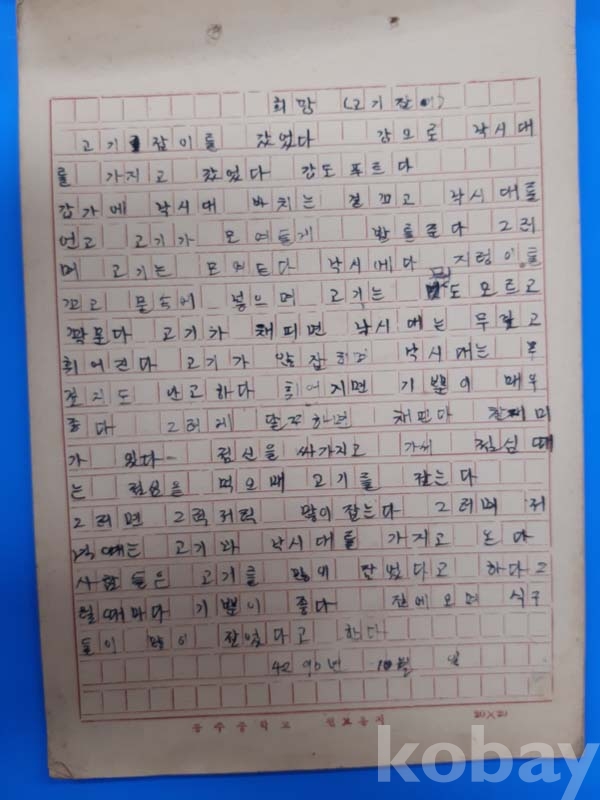 희망 (고기잡이)
고기잡이를 갔었다 강으로 낙시대
를 가지고 갔었다 강도 푸르다
강가에 낙시대 바치는 걸 꼬고 낙시대를
언고 고기가 모여들게 밥을 준다 그러
며 고기는 모여든다 낙시에다 지렁이를
꼬고 물속에 넣으며 고기는 도 모르고
꽉문다 고기가 채피면 낙시대는 무겁고
휘어진다 고기가 안 잡히면 낙시대는 무
겁지도 안고하다 휘어지면 기뿜이 매우
좋다 그러게 하면 채핀다 재미
가 있다 점신을 싸가지고 가서 점심때
는 점심을 먹으매 고기를 잡는다
그러면 그럭저럭 많이 잡는다 그러며 저
녁때는 고기과 낙시대를 가지고 온다
사람들은 고기를 많이 잡었다고 하다 그
럴때마다 기뿜이 좋다 집에 오며 식구
들이 많이 잡었다고 한다
4290년 10월 일
중학교 원고용지 20×20
kobay